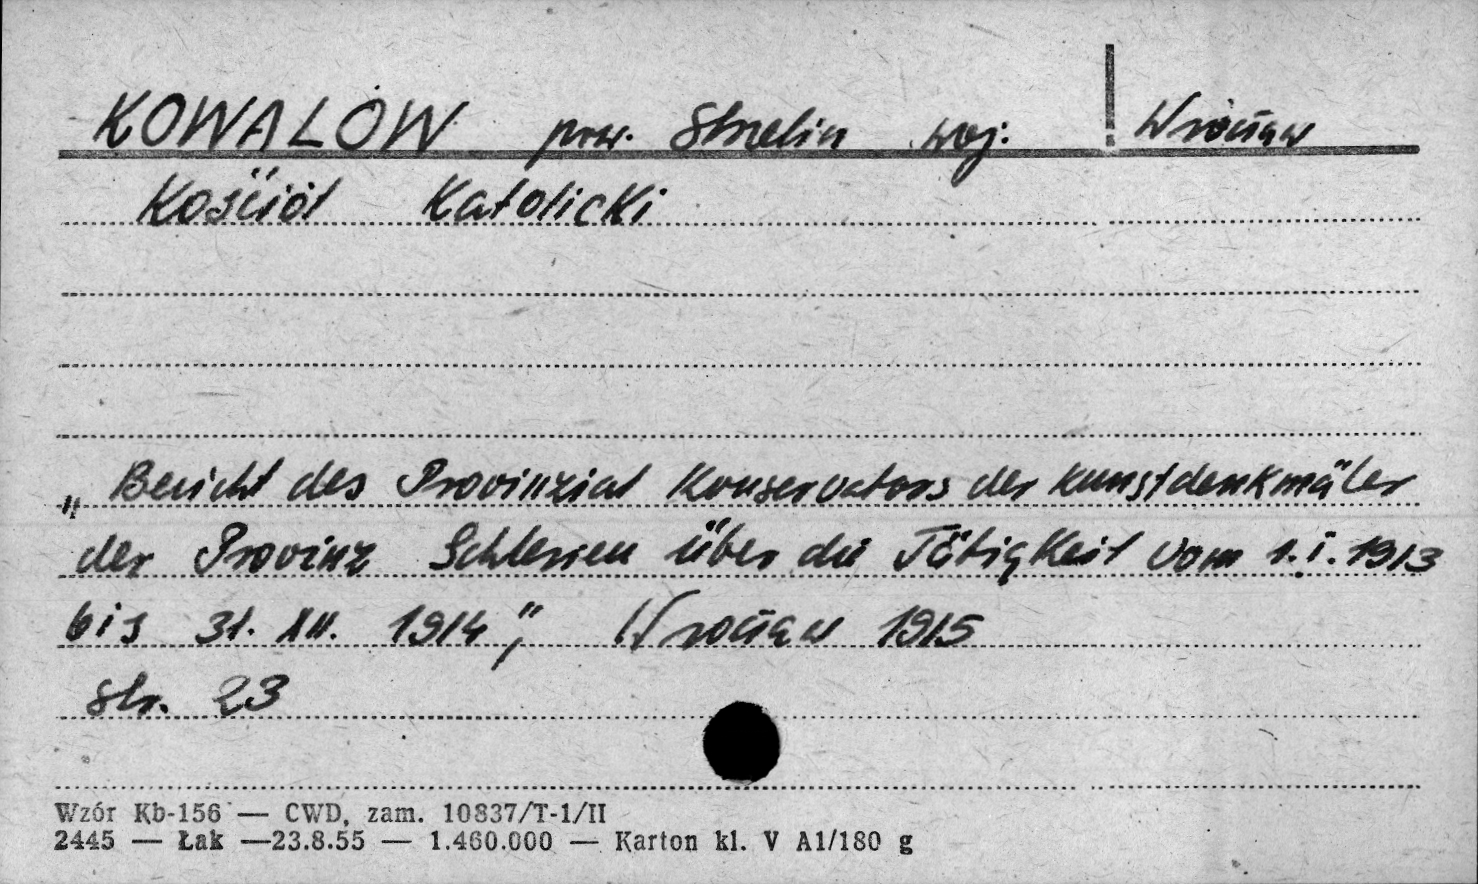 KOWALÓW pow. Strzelin woj. Wrocław
Kościół Katolicki
„Bericht des Provinzial Konservators der Kunstdenkmäler
der Provinz Schlesien über die Tätigkeit vom 1.I.1913
bis 31. XII. 1914", Wrocław 1915
str. 23
Wzór Kb-156 — CWD, zam. 10837/T-1/II
2445 — Łak —23.8.55 — 1.460.000 — Karton kl. V A1/180 g